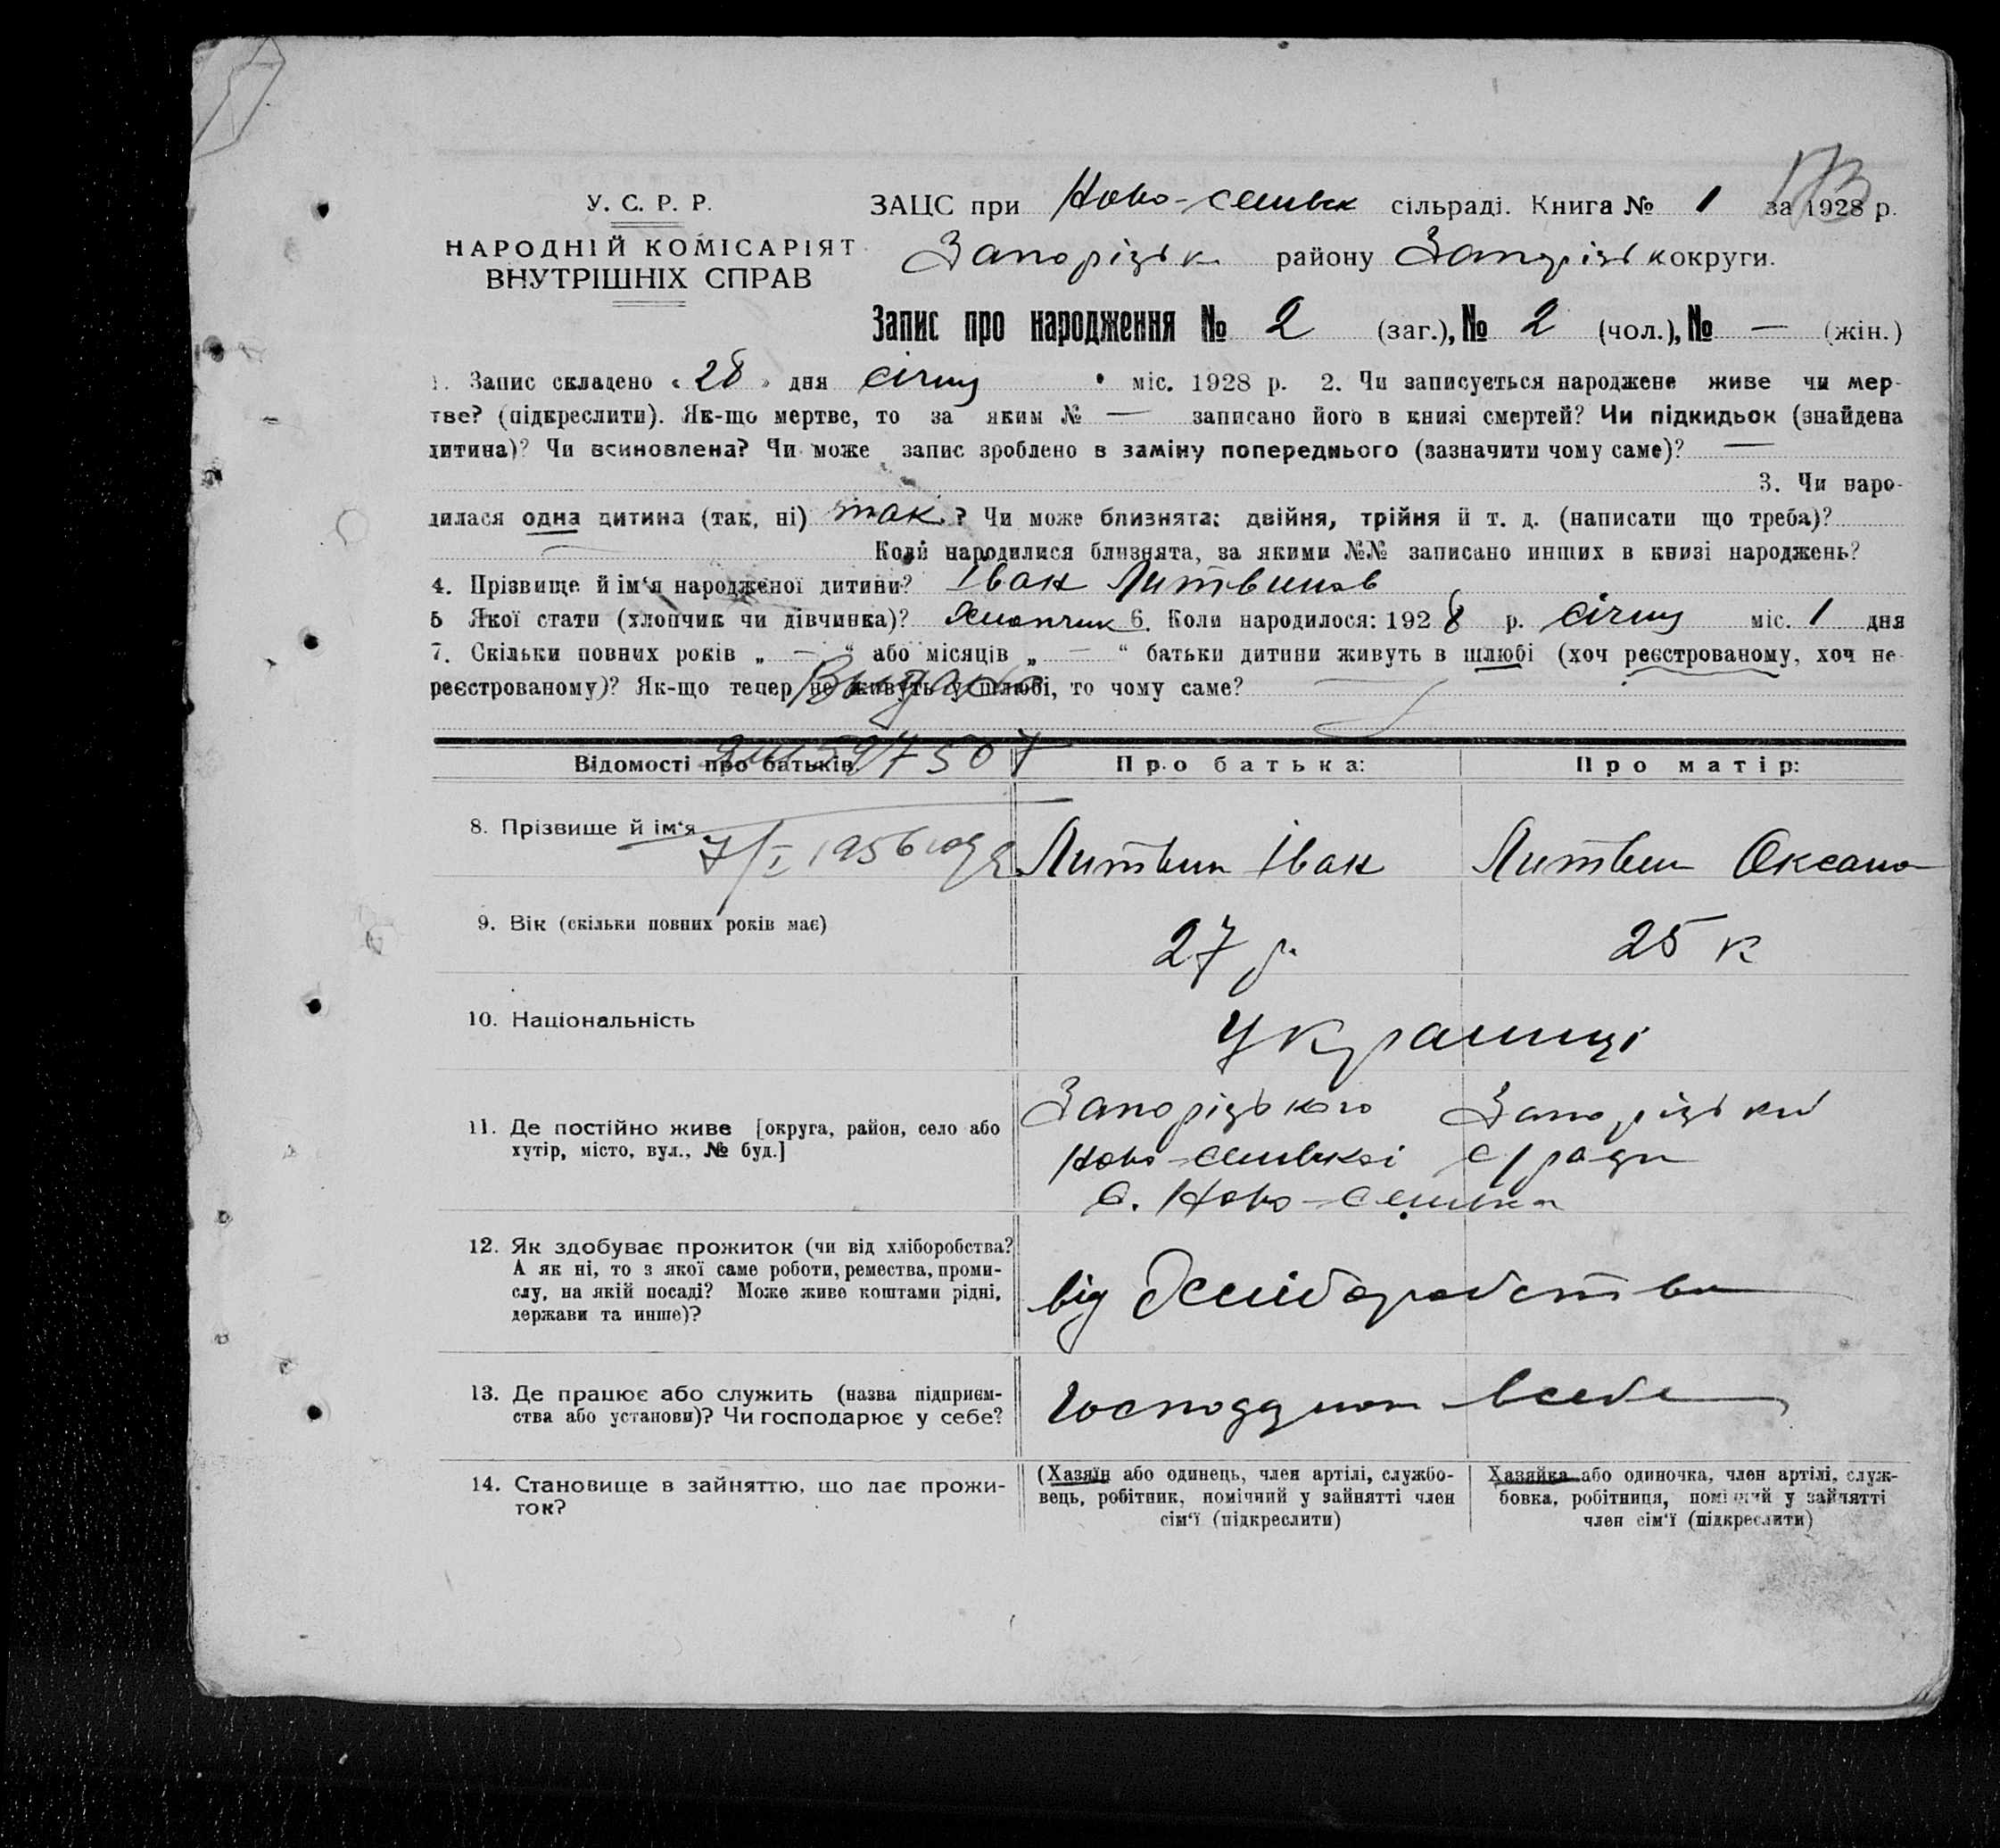 У. С. Р. Р.
НАРОДНІЙ КОМІСАРІЯТ
ВНУТРІШНІХ СПРАВ
ЗАЦС при Ново-селивск сільраді. Книга № 1 за 1928 р.
Запорізьк району Запорізьк округи.
Запис про народження № 2 (заг.), № 2 (чол.), № — (жін.)
1. Запис складено „28" дня січня міс. 1928 р. 2. Чи записується народжене живе чи мер-
тве? (підкреслити). Як-що мертве, то за яким № — записано його в книзі смертей? Чи підкидьок (знайдена
дитина)? Чи всиновлена? Чи може запис зроблено в заміну попереднього (зазначити чому саме)? —
3. Чи наро-
дилася одна дитина (так, ні) так ? Чи може близнята: двійня, трійня й т. д. (написати що треба)?
Коли народилися близнята, за якими №№ записано инших в книзі народжень?
4. Прізвище й ім'я народженої дитини? Іван Литвинов
5 Якої стати (хлопчик чи дівчинка)? Хлопчик 6. Коли народилося: 1928 р. січня міс. 1 дня
7. Скільки повних років „ — " або місяців „ — " батьки дитини живуть в шлюбі (хоч реєстрованому, хоч не-
реєстрованому)? Як-що тепер не живуть у шлюбі, то чому саме?
Відомості про батьків
597507
Про батька:
Про матір:
8. Прізвище й ім'я
7/I 1956 года
Литвин Іван
Литвин Оксана
9. Вік (скільки повних років має)
27 р.
25 р
10. Національність
Українці
11. Де постійно живе [округа, район, село або
хутір, місто, вул., № буд.]
Запорізького Запорізький
Ново-селивскоі с/ради
с. Ново-селивка
12. Як здобуває прожиток (чи від хліборобства?
А як ні, то з якої саме роботи, ремества, проми-
слу, на якій посаді? Може живе коштами рідні,
держави та инше)?
від Хліборобства
13. Де працює або служить (назва підприєм-
ства або установи)? Чи господарює у себе?
всебе
14. Становище в зайняттю, що дає прожи-
ток?
(Хазяїн або одинець, член артілі, службо-
вець, робітник, помічний у зайнятті член
сім'ї (підкреслити)
Хазяйка або одиночка, член артілі, служ-
бовка, робітниця, помічний у зайнятті
член сім'ї (підкреслити)